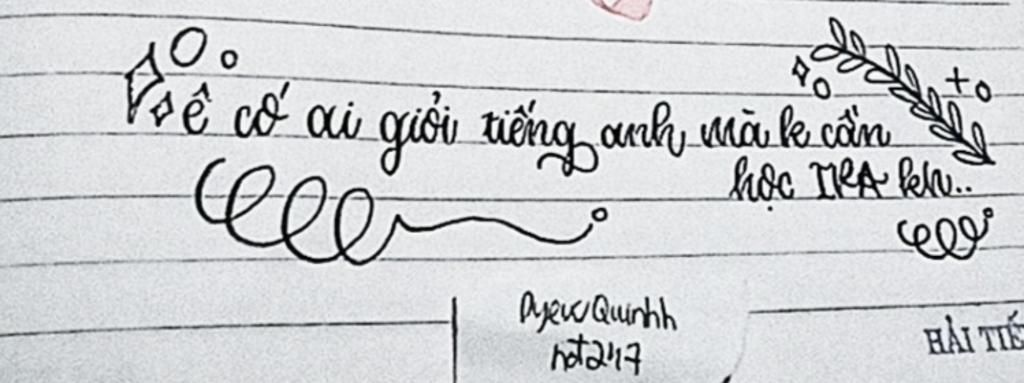 ê có ai giỏi tiếng anh mà k cần
học IPA kh..
Dyew Quinhh
not247
HẢI TIẾ